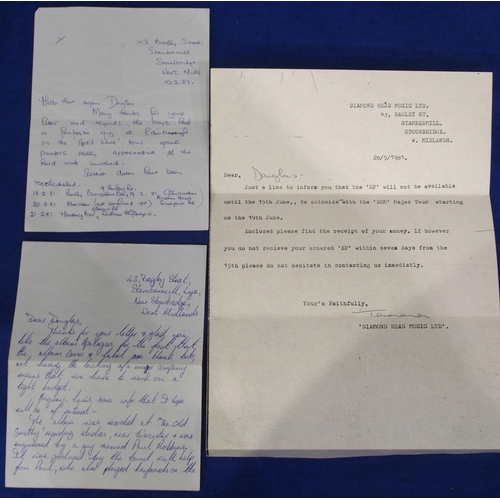 43 Bagley Street
Stambermill
Stourbridge
West Mids
10.3.81.
Hello there again Douglas
Many thanks for your
letter and
a fantastic gig at Edinborough
on the April Wine tour great
really appreciative of the
hard work involved.
dates have been
rescheduled.
43 Bagley Street,
Stambermill, Lye,
Near Stourbridge,
West Midlands.
Dear Douglas,
Thanks for your letter & glad you
like the album. Apologies for the fact that
the album cover & label are blank but,
not having the backing of a major company
means that we have to work on a
tight budget.
Anyway, here's some info that I hope
will be of interest -
The album was recorded at "The Old
Smithy" recording studios, near Worcester & was
engineered by a guy named Paul Robbins.
It was produced by the band with help
from Paul, who also played keyboards on the
DIAMOND HEAD MUSIC LTD.
43, BAGLEY ST,
STAMBERMILL,
STOURBRIDGE,
W. MIDLANDS.
28/5/1981.
Dear, Douglas -
Just a line to inform you that the 'EP' will not be available
until the 15th June,, to coincide with the 'DHM' Major Tour starting
on the 19th June.
Enclosed please find the receipt of your money. If however
you do not recieve your ordered 'EP' within seven days from the
15th please do not hesitate in contacting us immediatly.
Your's Faithfully,
'DIAMOND HEAD MUSIC LTD'.